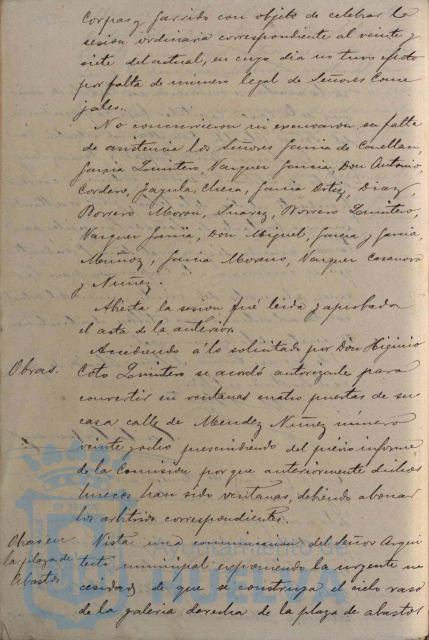 Corpas y Garrido con objeto de celebrar la
sesion ordinaria correspondiente al veinte y
siete del actual, en cuyo dia no tuvo efecto
por falta de número legal de Señores Conce
jales.
No concurrieron ni excusaron su falta
de asistencia los Señores Garcia de
Garcia Quintero, Vazquez Garcia, Don Antonio,
Cordero, Zayula, Checa, Garcia Ortiz, Diaz,
Borrero Moron, Suarez, Borrero Quintero,
Vazquez Garcia, Don Miguel, Garcia y Garcia
Muñoz, Garcia Moreno, Vazquez Casanova
y Nuñez.
Abierta la sesion fué leida y aprobada
el acta de la anterior.
Obras.
Accediendo á lo solicitado por Don Higinio
Coto Quintero se acordó autorizarle para
convertir en ventanas cuatro puertas de su
casa calle de Mendez Nuñez número
veinte y ocho prescindiendo del previo informe
de la Comision, por que anteriormente dichos
huecos han sido ventanas, debiendo abonar
los arbitrios correspondientes.
Obras en
la plaza de
Abastos
Vista una comunicacion del Señor Arqui
tecto municipal exponiendo la urgente ne
cesidad de que se construya el cielo raso
de la galeria derecha de la plaza de abastos
Ayuntamiento de
HUELVA